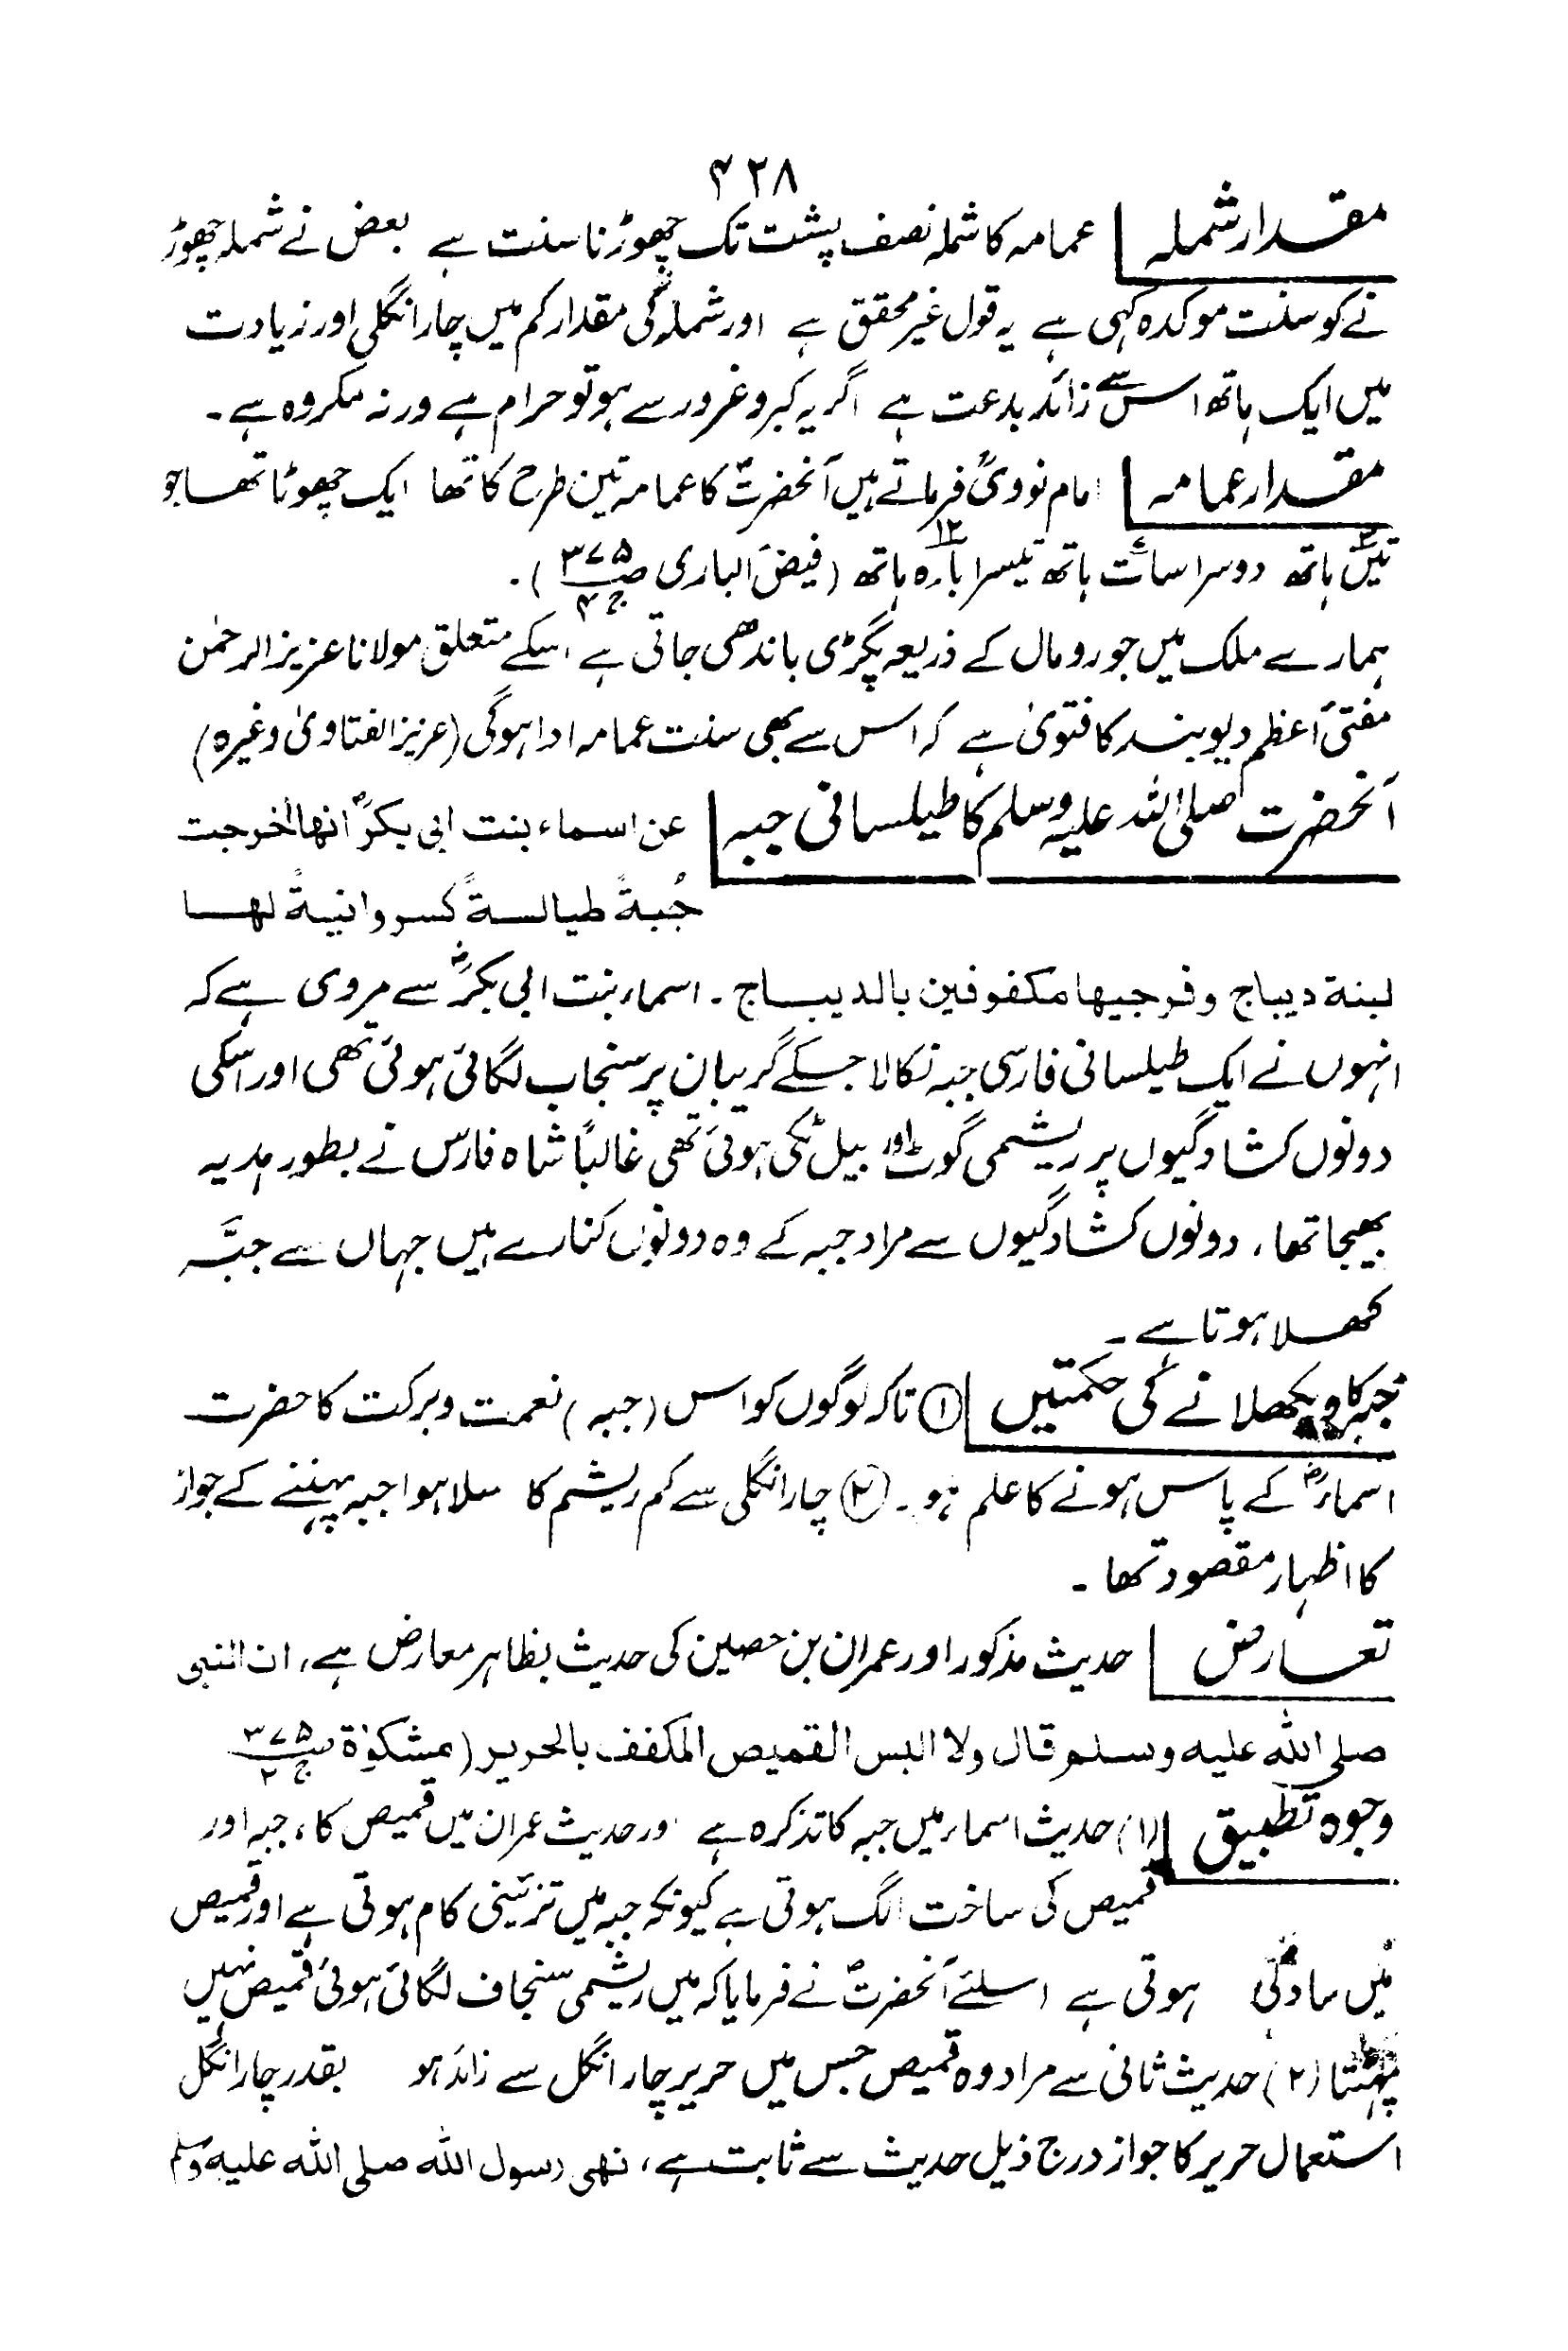 ۴۲۸
مقدار شملہ | عمامہ کا شملہ نصف پشت تک چھوڑنا سنت ہے بعض نے شملہ چھوڑ
نے کو سنت موکدہ کہی ہے یہ قول غیر محقق ہے اور شملہ کی مقدار کم میں چار انگلی اور زیادت
میں ایک ہاتھ اس سے زائد بدعت ہے اگر یہ کبر و غرور سے ہو تو حرام ہے ورنہ مکروہ ہے۔
مقدار عمامہ | امام نوویؒ فرماتے ہیں آنحضرتؐ کا عمامہ تین طرح کا تھا ایک چھوٹا تھا جو
تین ۳ ہاتھ دوسرا سات ۷ ہاتھ تیسرا بارہ ۱۲ ہاتھ (فیض الباری ص۳۷۵ ج۴)۔
ہمارے ملک میں جو رومال کے ذریعہ پگڑی باندھی جاتی ہے، اسکے متعلق مولانا عزیز الرحمٰن
مفتی اعظم دیوبند کا فتویٰ ہے کہ اس سے بھی سنت عمامہ ادا ہوگی (عزیز الفتاویٰ وغیرہ)
آنحضرت صلی اللہ علیہ وسلم کا طیلسانی جبہ | عن اسماء بنت ابی بکرؓ انھا اخرجت
جُبةً طیالسةً کسروانیةً لھا
لبنة دیباج وفرجیھا مکفوفین بالدیباج۔ اسماء بنت ابی بکرؓ سے مروی ہے کہ
انہوں نے ایک طیلسانی فارسی جبہ نکالا جسکے گریبان پر سنجاب لگائی ہوئی تھی اور اسکی
دونوں کشادگیوں پر ریشمی گوٹ اور بیل ٹکی ہوئی تھی غالباً شاہ فارس نے بطور ہدیہ
بھیجا تھا، دونوں کشادگیوں سے مراد جبہ کے وہ دونوں کنارے ہیں جہاں سے جبَّہ
کھلا ہوتا ہے۔
جبہ کا دیکھلانے کی حکمتیں | ① تاکہ لوگوں کو اس (جبہ) نعمت و برکت کا حضرت
اسماءؓ کے پاس ہونے کا علم ہو۔ ② چار انگلی سے کم ریشم کا سلا ہوا جبہ پہننے کے جواز
کا اظہار مقصود تھا۔
تعارض | حدیث مذکور اور عمران بن حصین کی حدیث بظاہر معارض ہے، ان النبی
صلی اللہ علیہ وسلم قال ولا البس القمیص المکفف بالحریر (مشکوٰة ص۳۷۵ ج۲
وجوہ تطبیق | (۱) حدیث اسماء میں جبہ کا تذکرہ ہے اور حدیث عمران میں قمیص کا، جبہ اور
قمیص کی ساخت الگ ہوتی ہے کیونکہ جبہ میں تزئینی کام ہوتی ہے اور قمیص
میں سادگی ہوتی ہے اسلئے آنحضرتؐ نے فرمایا کہ میں ریشمی سنجاف لگائی ہوئی قمیص نہیں
پہنتا (۲) حدیث ثانی سے مراد وہ قمیص جس میں حریر چار انگل سے زائد ہو بقدر چار انگل
استعمال حریر کا جواز درج ذیل حدیث سے ثابت ہے، نھی رسول اللہ صلی اللہ علیہ وسلم